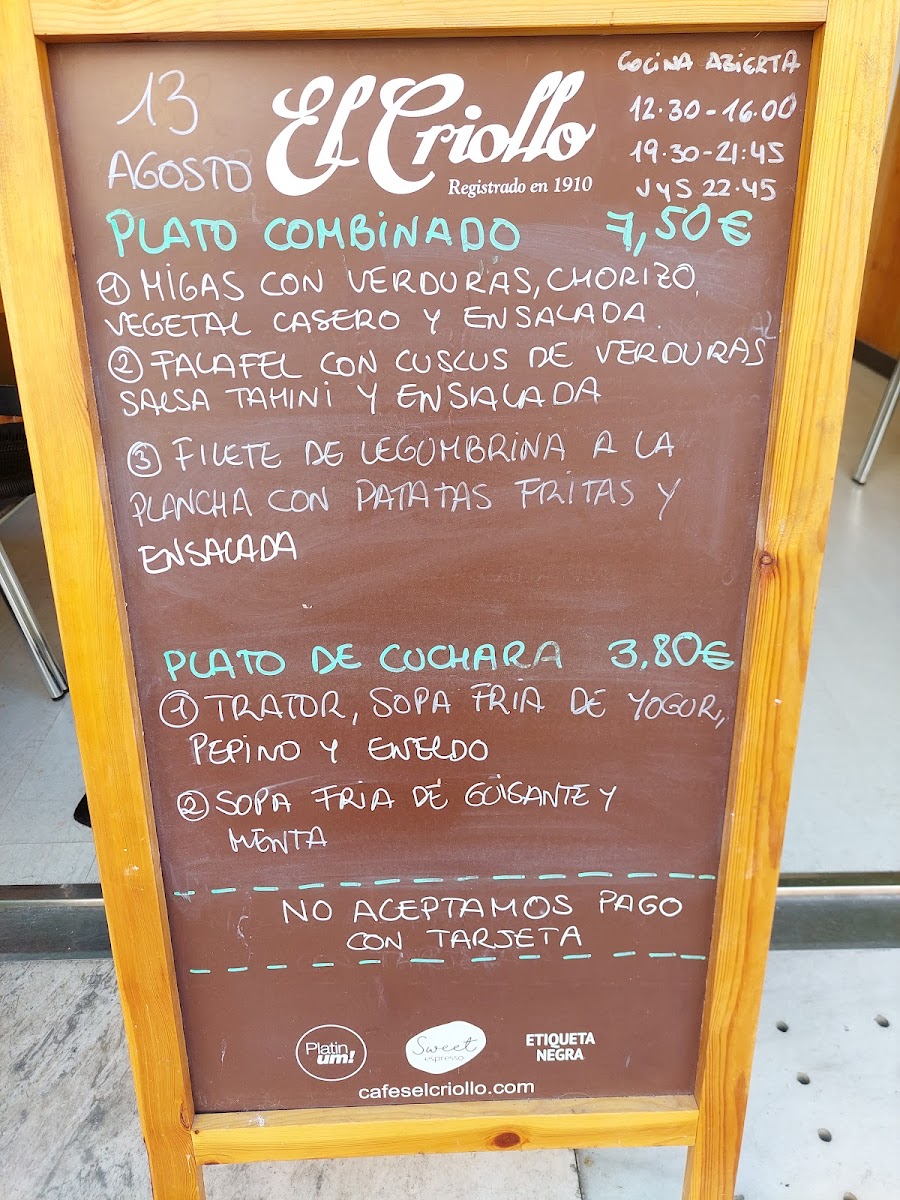 13
AGOSTO
El Criollo
Registrado en 1910
COCINA ABIERTA
12.30-16.00
19.30-21:45
J y S 22.45
PLATO COMBINADO 7,50€
① MIGAS CON VERDURAS, CHORIZO,
VEGETAL CASERO Y ENSALADA.
② FALAFEL CON CUSCUS DE VERDURAS
SALSA TAHINI Y ENSALADA
③ FILETE DE LEGUMBRINA A LA
PLANCHA CON PATATAS FRITAS Y
ENSALADA
PLATO DE CUCHARA 3,80€
① TRATOR, SOPA FRIA DE YOGUR,
PEPINO Y ENELDO
② SOPA FRIA DE GUISANTE Y
MENTA
NO ACEPTAMOS PAGO
CON TARJETA
Platin
um!
Sweet
espresso
ETIQUETA
NEGRA
cafeselcriollo.com